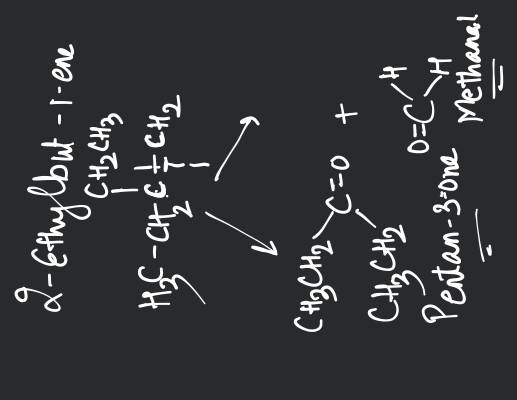 2-Ethylbut-1-ene
CH2CH3
H3C-CH2-C=CH2
CH3CH2
C=O
CH3CH2
+
H
O=C
H
Pentan-3-one
Methanal